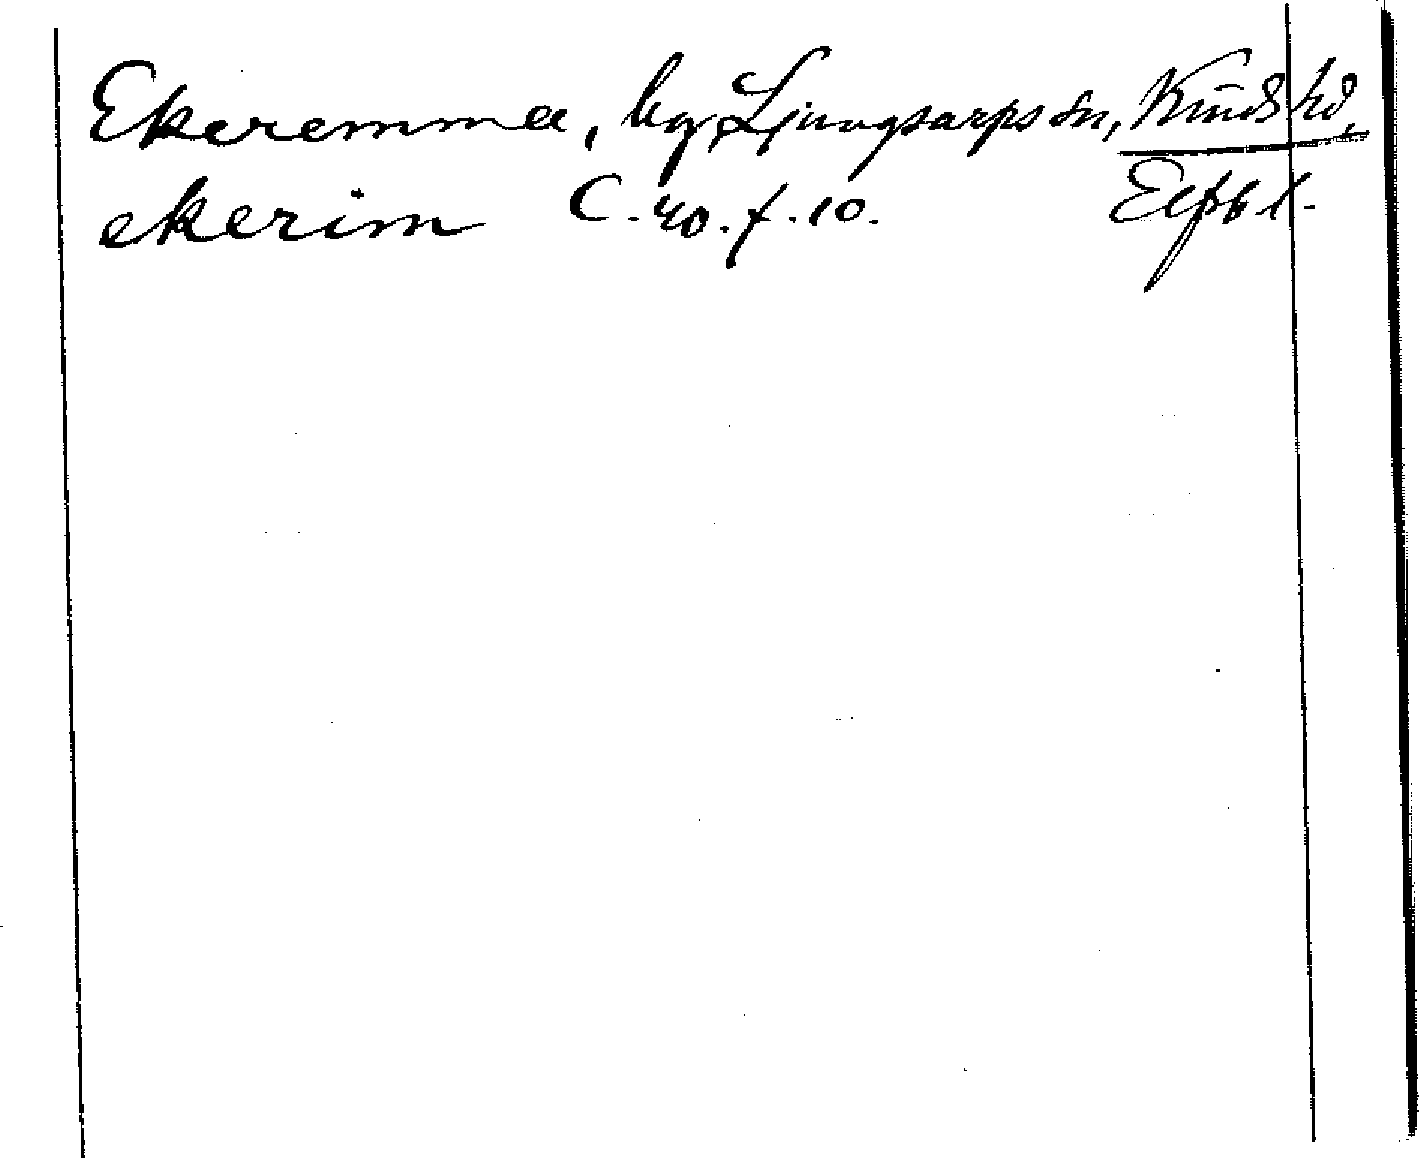 Ekeremma, by, Ljungsarps sn, Kinds hd,
ekerim C. 40. f. 10. Elfsb l.